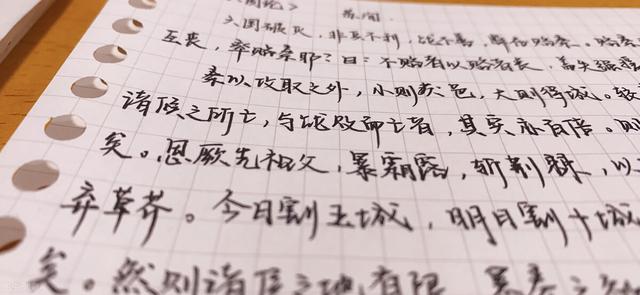 国论》 苏洵
六国破灭，非兵不利，战不善，弊在赂秦。赂秦
互丧，率赂秦耶？曰：不赂者以赂者丧，盖失强援
秦以攻取之外，小则获邑，大则得城。较
诸侯之所亡，与战败而亡者，其实亦百倍。则
矣。思厥先祖父，暴霜露，斩荆棘，以
弃草芥。今日割五城，明日割十城
矣。然则诸侯之地有限，暴秦之欲